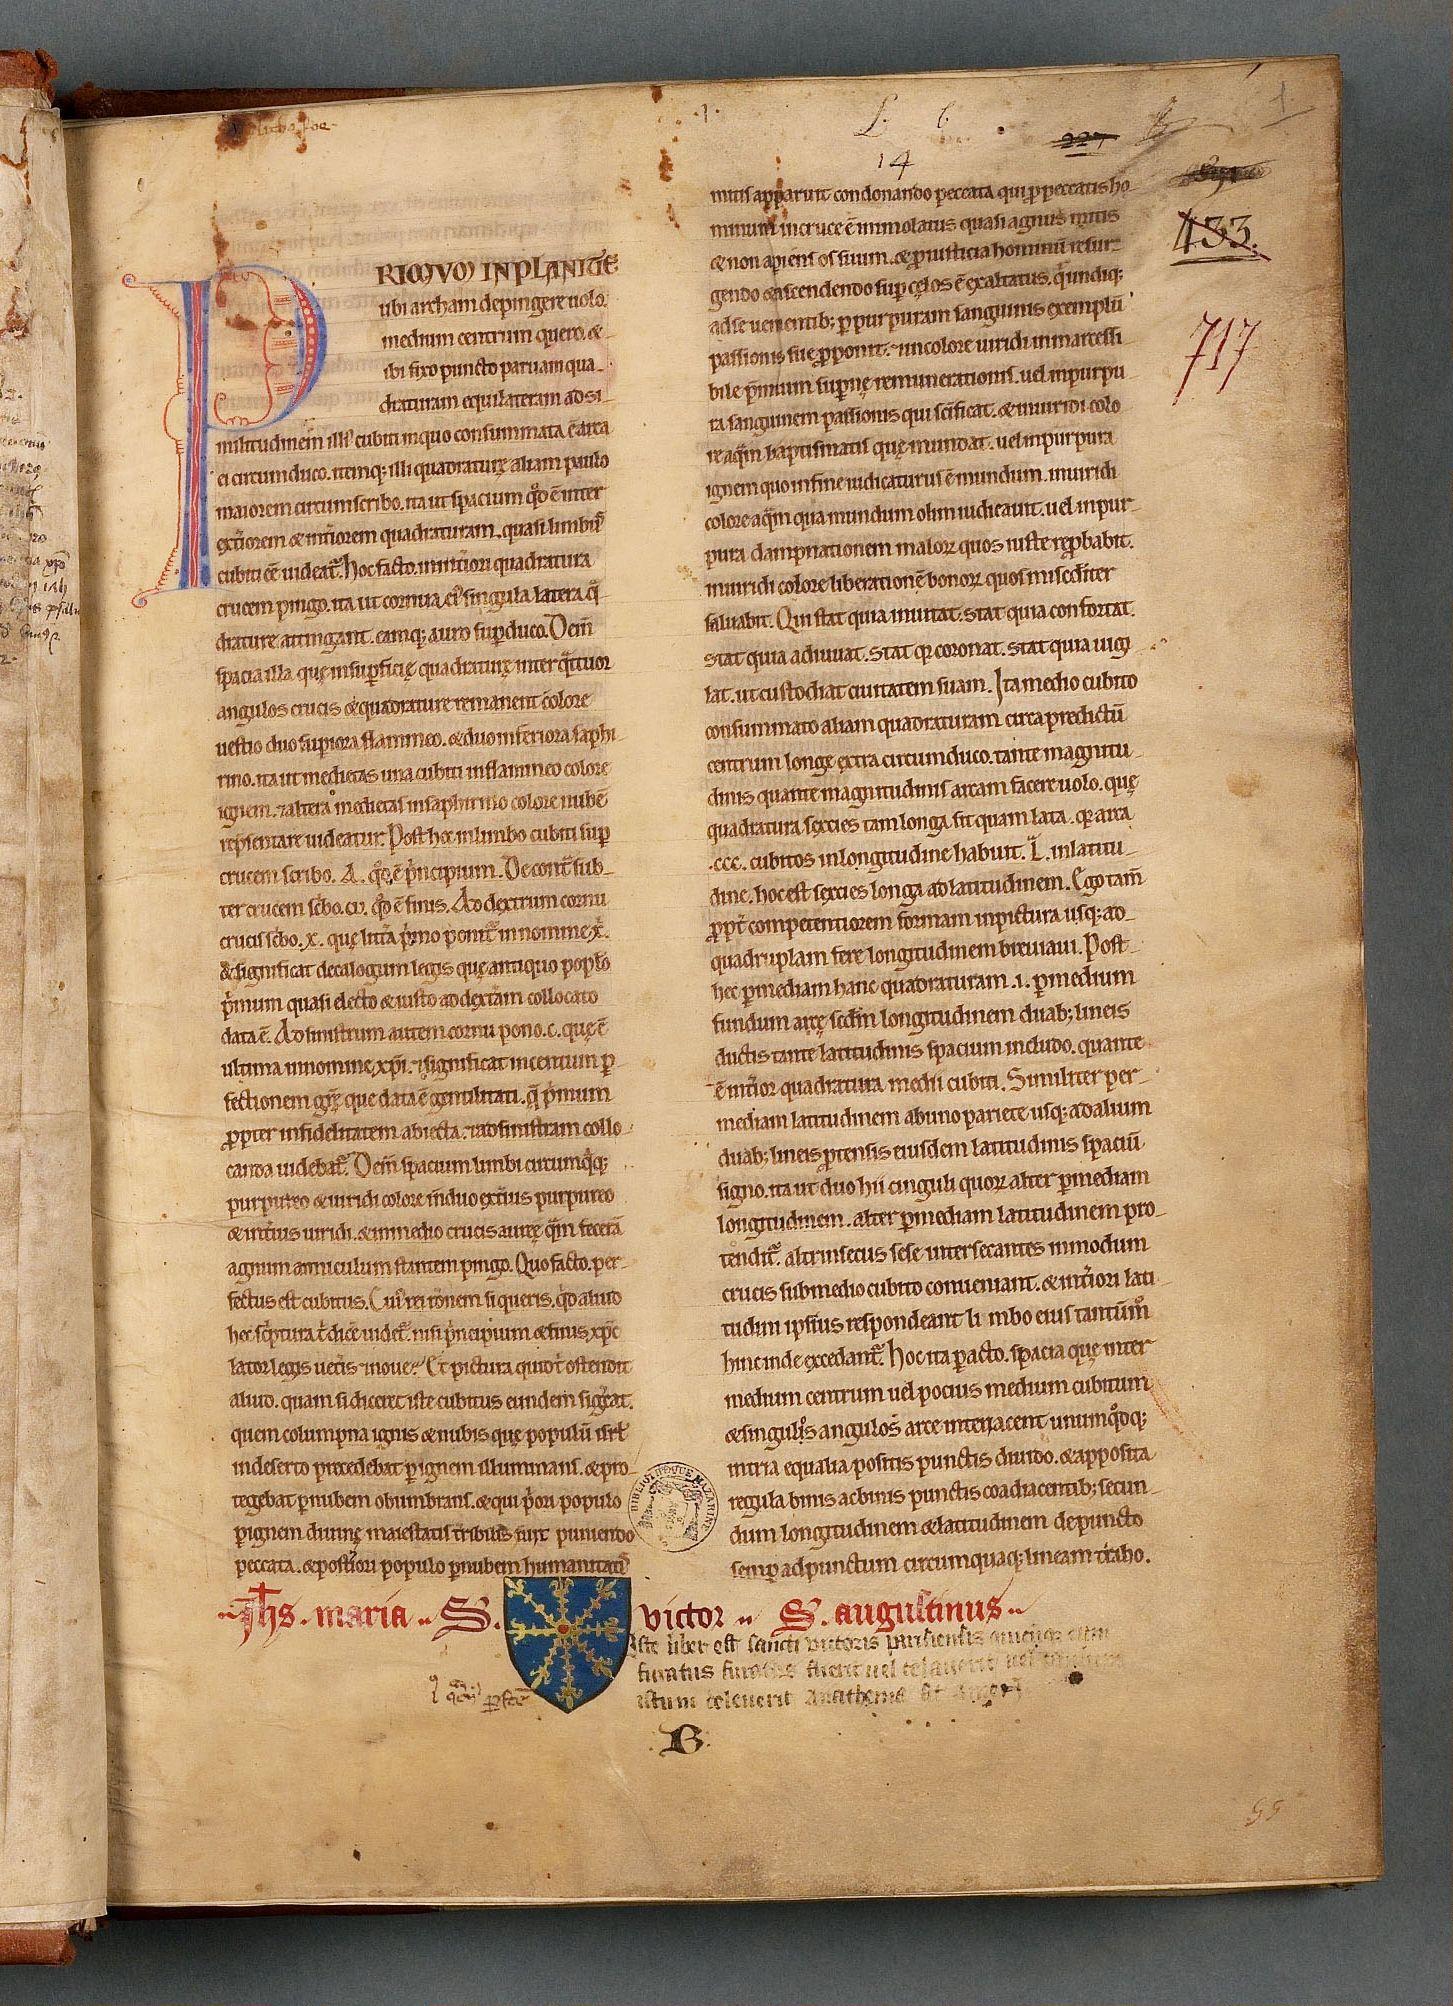 L. b.
14
433.
717
PRIMUM IN PLANITIE
ubi archam depingere uolo.
medium centrum quero. &
ibi fixo puncto paruam qua-
draturam equilateram ad si-
militudinem illi' cubiti in quo consummata ē arca
ei circumduco. itemq; illi quadraturę aliam paulo
maiorem circumscribo. ita ut spacium qd̄ ē inter
exťiorem & inťiorem quadraturam. quasi limbus
cubiti eē uideat᷑. hoc facto. in inťiori quadratura
crucem pingo. ita ut cornua ei' singula latera q̄-
drature attingant. eamq; auro sup̄duco. Dein̄
spacia illa. quę in sup̄ficię quadraturę inter q̄ttuor
angulos crucis & quadrature remanent colore
uestio duo supiora flammeo. & duo inferiora saphi-
rino. ita ut medietas una cubiti in flammeo colore
ignem. & altera medietas in saphirino colore nubē
rep̄sentare uideatur. Post hec in limbo cubiti sup̄
crucem scribo. A. qd̄ ē p̄ncipium. De cont̄ sub-
ter crucem sc̄bo. ω. qd̄ ē finis. Ad dextrum cornu
crucis sc̄bo. x. quę litťa p̄mo ponit᷑ in nomine x̄.
& significat decalogum legis quę antiquo pop̄lo
p̄mum quasi electo & iusto ad dexťam collocato
data ē. Ad sinistrum autem cornu pono. c. quę ē
ultima in nomine xp̄i. & significat incentium p̄-
fectionem gr̄ę que data ē gentilitati. q̄ p̄mum
p̄pter infidelitatem abiecta. & ad sinistram collo-
canda uidebat᷑. Dein̄ spacium limbi circumq̄q;
purpureo & uiridi colore induo exťius purpureo
& inťius uiridi. & in medio crucis aurę q̄m fecerā
agnum anniculum stantem pingo. Quo facto. per-
fectus est cubitus. Cui' rei rōnem si queris. qd̄ aliud
hec sc̄ptura t̄ dicē uidet᷑. nisi p̄ncipium & finis xp̄c
lator legis uet̄is & noue? Et pictura quid t̄ ostendit
aliud. quam si diceret iste cubitus eundem siḡreat.
quem columpna ignis & nubis quę populū isrl̄
in deserto precedebat p̄ ignem illuminans. & pro-
tegebat p̄ nubem obumbrans. & qui p̄ori populo
p̄ ignem diuinę maiestatis ťribilis fuit puniendo
peccata. & posťiori populo p̄ nubem humanitatis
mitis apparuit condonando peccata qui p̄ peccatis ho-
minum in cruce ē immolatus quasi agnus mitis
& non apiens os suum. & p̄ iusticia hominū resur-
gendo & ascendendo sup̄ cęlos ē exaltatus. q̄ undiq;
ad se uenientib; p̄ purpuram sanguinis exemplū
passionis suę p̄ponit. & in colore uiridi inmarcessi-
bile p̄mium sup̄nę remunerationis. uel in purpu-
ra sanguinem passionis qui sc̄ificat. & in uiridi colo-
re aq̄m baptismatis quę mundat. uel in purpura
ignem quo in fine iudicaturus ē mundum. in uiridi
colore aq̄m qua mundum olim iudicauit. uel in pur-
pura dampnationem malorꝝ quos iuste rep̄babit.
in uiridi colore liberationē bonorꝝ quos misedit̄er
saluabit. Qui stat quia inuitat. stat quia confortat.
stat quia adiuuat. stat qr coronat. stat quia uigi-
lat. ut custodiat ciuitatem suam. Ita medio cubito
consummato aliam quadraturam circa predictū
centrum longe extra circumduco. tante magnitu-
dinis quante magnitudinis arcam facere uolo. quę
quadratura sexcies tam longa sit quam lata. qr arca
.ccc. cubitos in longitudine habuit. L. in latitu-
dine. hoc est sexcies longa ad latitudinem. Ego tam̄
p̄pt̄ competentiorem formam in pictura usq; ad
quadruplam fere longitudinem breuiaui. Post
hec p̄ mediam hanc quadraturam .i. p̄ medium
fundum arcę scd̄m longitudinem duab; lineis
ductis tante latitudinis spacium includo. quante
ē inťior quadratura medii cubiti. Similiter per
mediam latitudinem ab uno pariete usq; ad alium
duab; lineis p̄tensis eiusdem latitudinis spaciū
signo. ita ut duo hii cinguli quorꝝ alter p̄ mediam
longitudinem. alter p̄ mediam latitudinem pro-
tendit᷑. altrinsecus sese intersecantes in modum
crucis sub medio cubito conueniant. & inťiori lati-
tudini ipsius respondeant li mbo eius tantum̊
hinc inde excedant᷑. hoc ita p̄acto. spacia quę inter
medium centrum uel pocius medium cubitum
& singulos angulos arce interiacent unumqd̄q;
in tria equalia positis punctis diuido. & apposita
regula binis ac binis punctis coadiacentib; secun-
dum longitudinem & latitudinem de puncto
semp̄ ad punctum circumquaq; lineam traho.
BIBLIOTHEQUE MAZARINE
Jhs. maria .. S. victor .. S. augustinus ..
Iste liber est sancti victoris parisiensis quicūqꝫ eum
furatus fuerit uel celauerit uel titulum
istum deleuerit Anathema sit Amen
B.
55